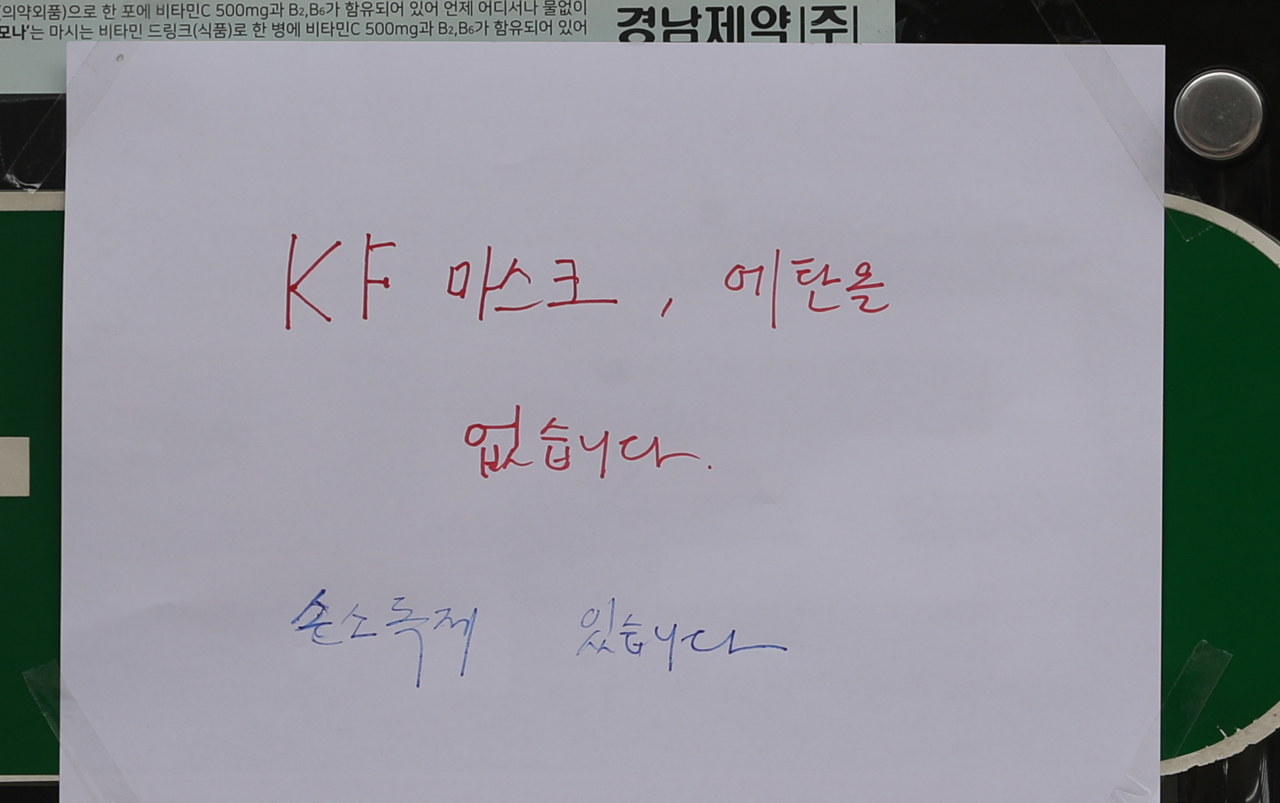 (의약외품)으로 한 포에 비타민C 500mg과 B₂,B₆가 함유되어 있어 언제 어디서나 물없이
모나'는 마시는 비타민 드링크(식품)로 한 병에 비타민C 500mg과 B₂,B₆가 함유되어 있어
경남제약|주|
KF 마스크, 에탄올
없습니다.
손소독제 있습니다